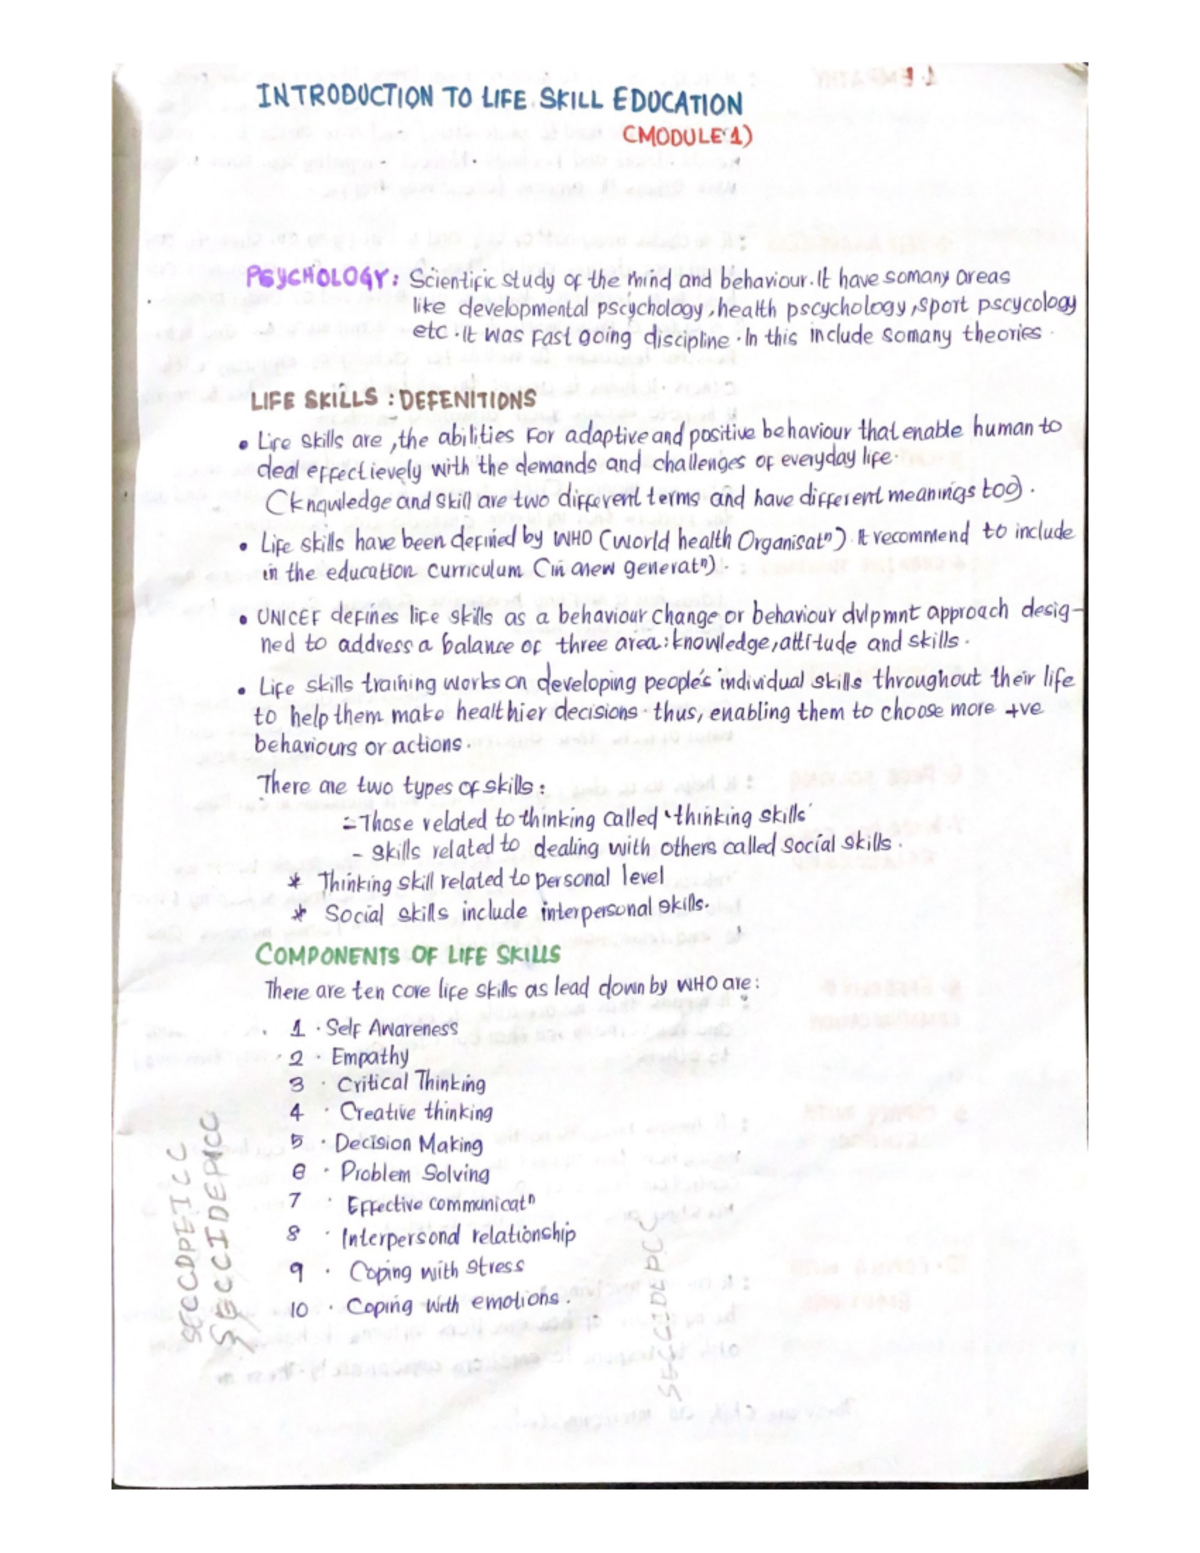 INTRODUCTION TO LIFE SKILL EDUCATION
(MODULE 1)
PSYCHOLOGY: Scientific study of the mind and behaviour. It have somany areas
like developmental pscychology, health pscychology, sport pscycology
etc. It was Fast Going discipline. In this include somany theories.
LIFE SKILLS : DEFENITIONS
• Life skills are, the abilities For adaptive and positive behaviour that enable human to
deal effectievely with the demands and challenges of everyday life.
(knowledge and skill are two different terms and have different meanings too).
• Life skills have been defined by WHO (World health Organisatⁿ). It recommend to include
in the education curriculum (in anew generatⁿ).
• UNICEF defines life skills as a behaviour change or behaviour dvlpmnt approach desig-
ned to address a balance of three area: knowledge, attitude and skills.
• Life skills training works on developing people's individual skills throughout their life
to help them make healthier decisions. thus, enabling them to choose more +ve
behaviours or actions.
There are two types of skills:
- Those related to thinking called 'thinking skills'
- skills related to dealing with others called social skills.
* Thinking skill related to personal level
* Social skills include interpersonal skills.
COMPONENTS OF LIFE SKILLS
There are ten core life skills as lead down by WHO are:
1. Self Awareness
2. Empathy
3. Critical Thinking
4. Creative thinking
5. Decision Making
6. Problem Solving
7. Effective communicatⁿ
8. Interpersonal relationship
9. Coping with stress
10. Coping with emotions.
SECCDPEICC
SECCIDEPICC
SECCIDEPCC